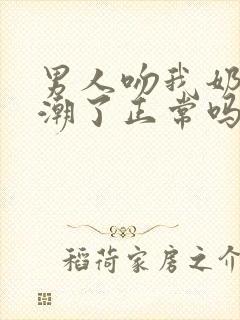 男人吻我奶
潮了正常吗
稻荷家房之介